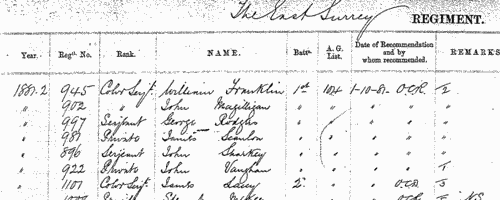 The East Surrey REGIMENT.
Year. Regtl. No. Rank. NAME. Batn. A. G. List. Date of Recommendation and by whom recommended. REMARKS
1881-2 945 Color Serjt. William Franklin 1st 104 1-10-81- O.C.R. 2
" 902 " John Magilligan " " " " "
" 997 Serjeant George Rodgers " " " " "
" 987 Private James Scanlon " " " "
" 896 Serjeant John Sharkey " " " "
" 922 Private John Vaughan " " " " 1
" 1107 Color Serjt. James Lacey 2. " " O.C.R. 3